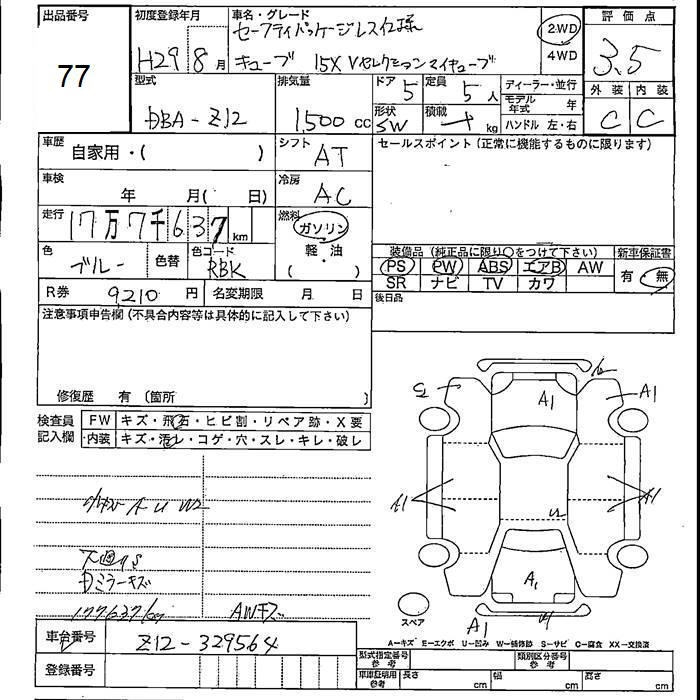 出品番号 初度登録年月 車名・グレード 評価点
セーフティパッケージレス仕様
77 H29 8月 キューブ 15X Vセレクション マイキューブ 2WD 4WD 3.5
型式 排気量 ドア 5 定員 5人 ディーラー・並行 外装 内装
DBA-Z12 1,500cc 形状 SW 積載 kg モデル年式 年 C C
ハンドル 左・右
車歴 自家用・( ) シフト AT セールスポイント(正常に機能するものに限ります)
車検 年 月( 日) 冷房 AC
走行 17万7千637km 燃料 ガソリン 軽・油 ( )
色 ブルー 色替 色コード RBK 装備品(純正品に限り〇をつけて下さい) 新車保証書
PS PW ABS エアB AW 有・無
SR ナビ TV カワ
R券 9210円 名変期限 月 日 後日品
注意事項申告欄(不具合内容等は具体的に記入して下さい)
修復歴 有 (箇所 )
検査員記入欄 FW キズ・飛石・ヒビ割・リペア跡・X要
内装 キズ・汚レ・コゲ・穴・スレ・キレ・破レ
A1 A1
A1 A1
A1
A1
スペア
下回りS
Dミラーキズ
177637kg AWキズ
A−キズ E−エクボ U−凹み W−補修跡 S−サビ C−腐食 XX−交換済
車台番号 Z12-329564 型式指定番号 参考 類別区分番号 参考
登録番号 車庫証明用 参考 長さ cm 幅 cm 高さ cm